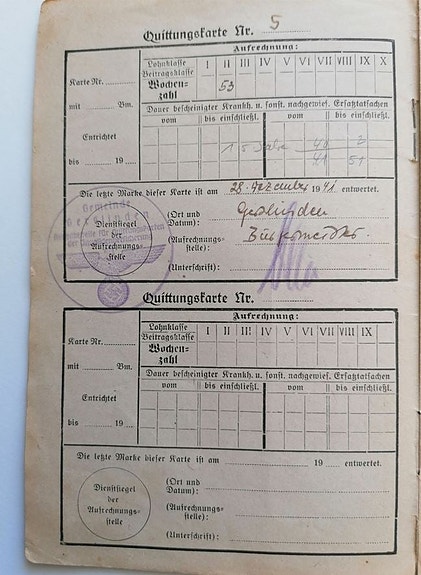 Quittungskarte Nr. 5
Aufrechnung:
Karte Nr.
mit Bm.
Entrichtet
bis 19
Lohnklasse I II III IV V VI VII VIII IX X
Beitragsklasse
Wochenzahl 53
Dauer bescheinigter Krankh. u. sonst. nachgewies. Ersatztatsachen
vom bis einschließl. vom bis einschließl.
41 51
Die letzte Marke dieser Karte ist am 28. Dezember 1941 entwertet.
Gemeinde
Dienstsiegel
der
Aufrechnungs-
stelle
(Ort und
Datum):
(Aufrechnungs-
stelle): Bürgermeister
(Unterschrift):
Quittungskarte Nr.
Aufrechnung:
Karte Nr.
mit Bm.
Entrichtet
bis 19
Lohnklasse I II III IV V VI VII VIII IX X
Beitragsklasse
Wochenzahl
Dauer bescheinigter Krankh. u. sonst. nachgewies. Ersatztatsachen
vom bis einschließl. vom bis einschließl.
Die letzte Marke dieser Karte ist am 19 entwertet.
Dienstsiegel
der
Aufrechnungs-
stelle
(Ort und
Datum):
(Aufrechnungs-
stelle):
(Unterschrift):